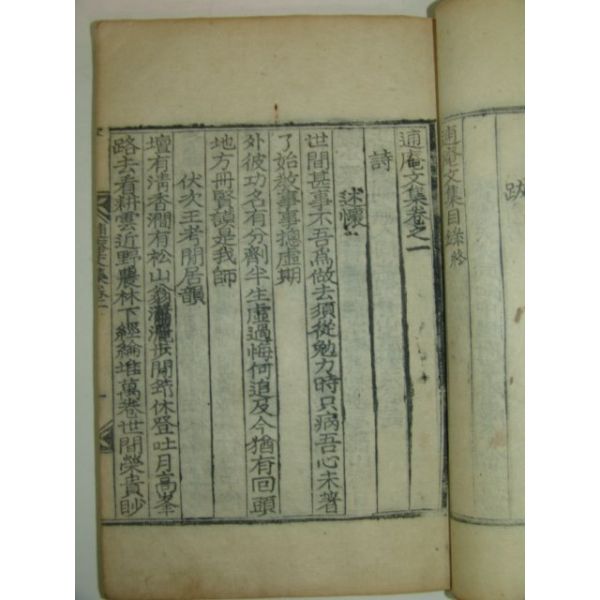 跋
逋庵文集目錄終
逋庵文集卷之一
詩
述懷
世間甚事不吾爲做去須從勉力時只病吾心未著
了始敎事事摠虛期
外彼功名有分劑半生虛過悔何追及今猶有回頭
地方冊賢謨是我師
伏次王考閒居韻
壇有淸香澗有松山翁灑灑步閒筇休登吐月高峯
路去看耕雲近野農林下經綸堆萬卷世間榮貴眇
逋庵文集卷一